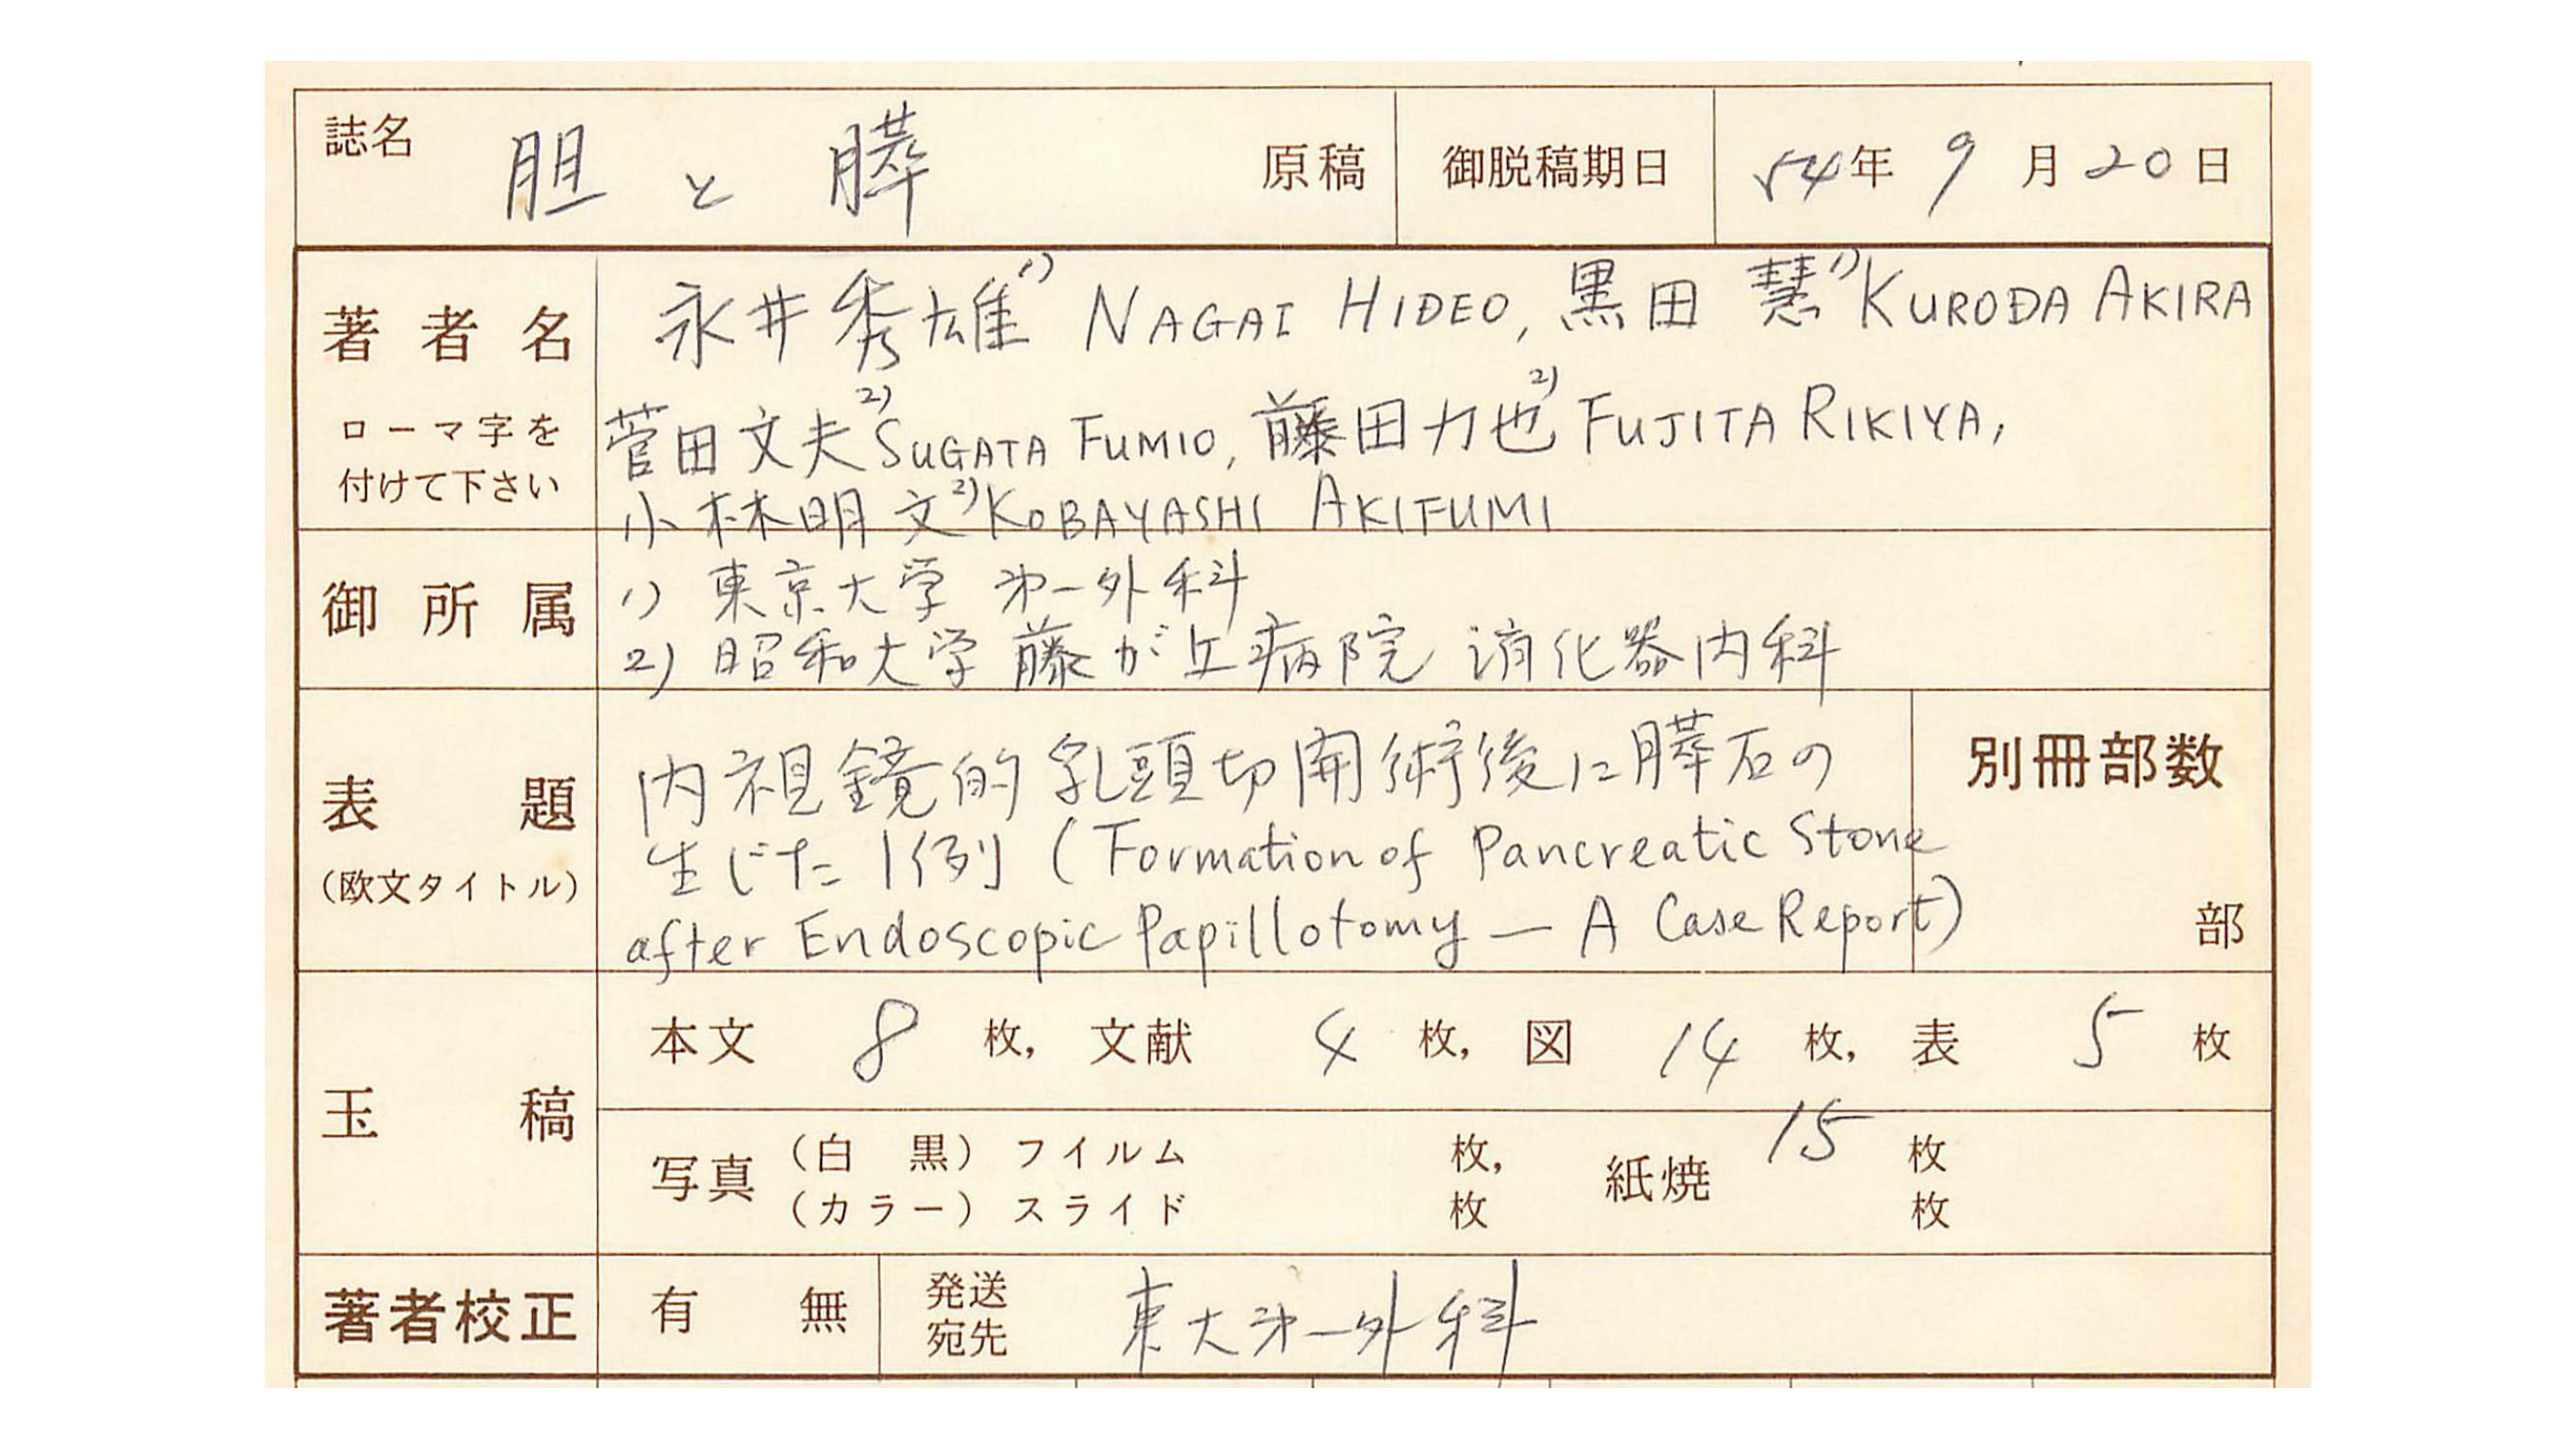 誌名 胆と膵 原稿 御脱稿期日 54年9月20日
著者名 永井秀雄1) NAGAI HIDEO, 黒田 慧1) KURODA AKIRA
ローマ字を 菅田文夫2) SUGATA FUMIO, 藤田力也2) FUJITA RIKIYA,
付けて下さい 小林明文2) KOBAYASHI AKIFUMI
御所属 1) 東京大学 第一外科
2) 昭和大学藤が丘病院 消化器内科
表題 内視鏡的乳頭切開術後に膵石の 別冊部数
生じた1例 (Formation of Pancreatic Stone
(欧文タイトル) after Endoscopic Papillotomy — A Case Report) 部
玉稿 本文 8 枚, 文献 4 枚, 図 14 枚, 表 5 枚
写真 (白黒) フイルム 枚, 紙焼 15 枚
(カラー) スライド 枚 枚
著者校正 有 無 発送宛先 東大第一外科